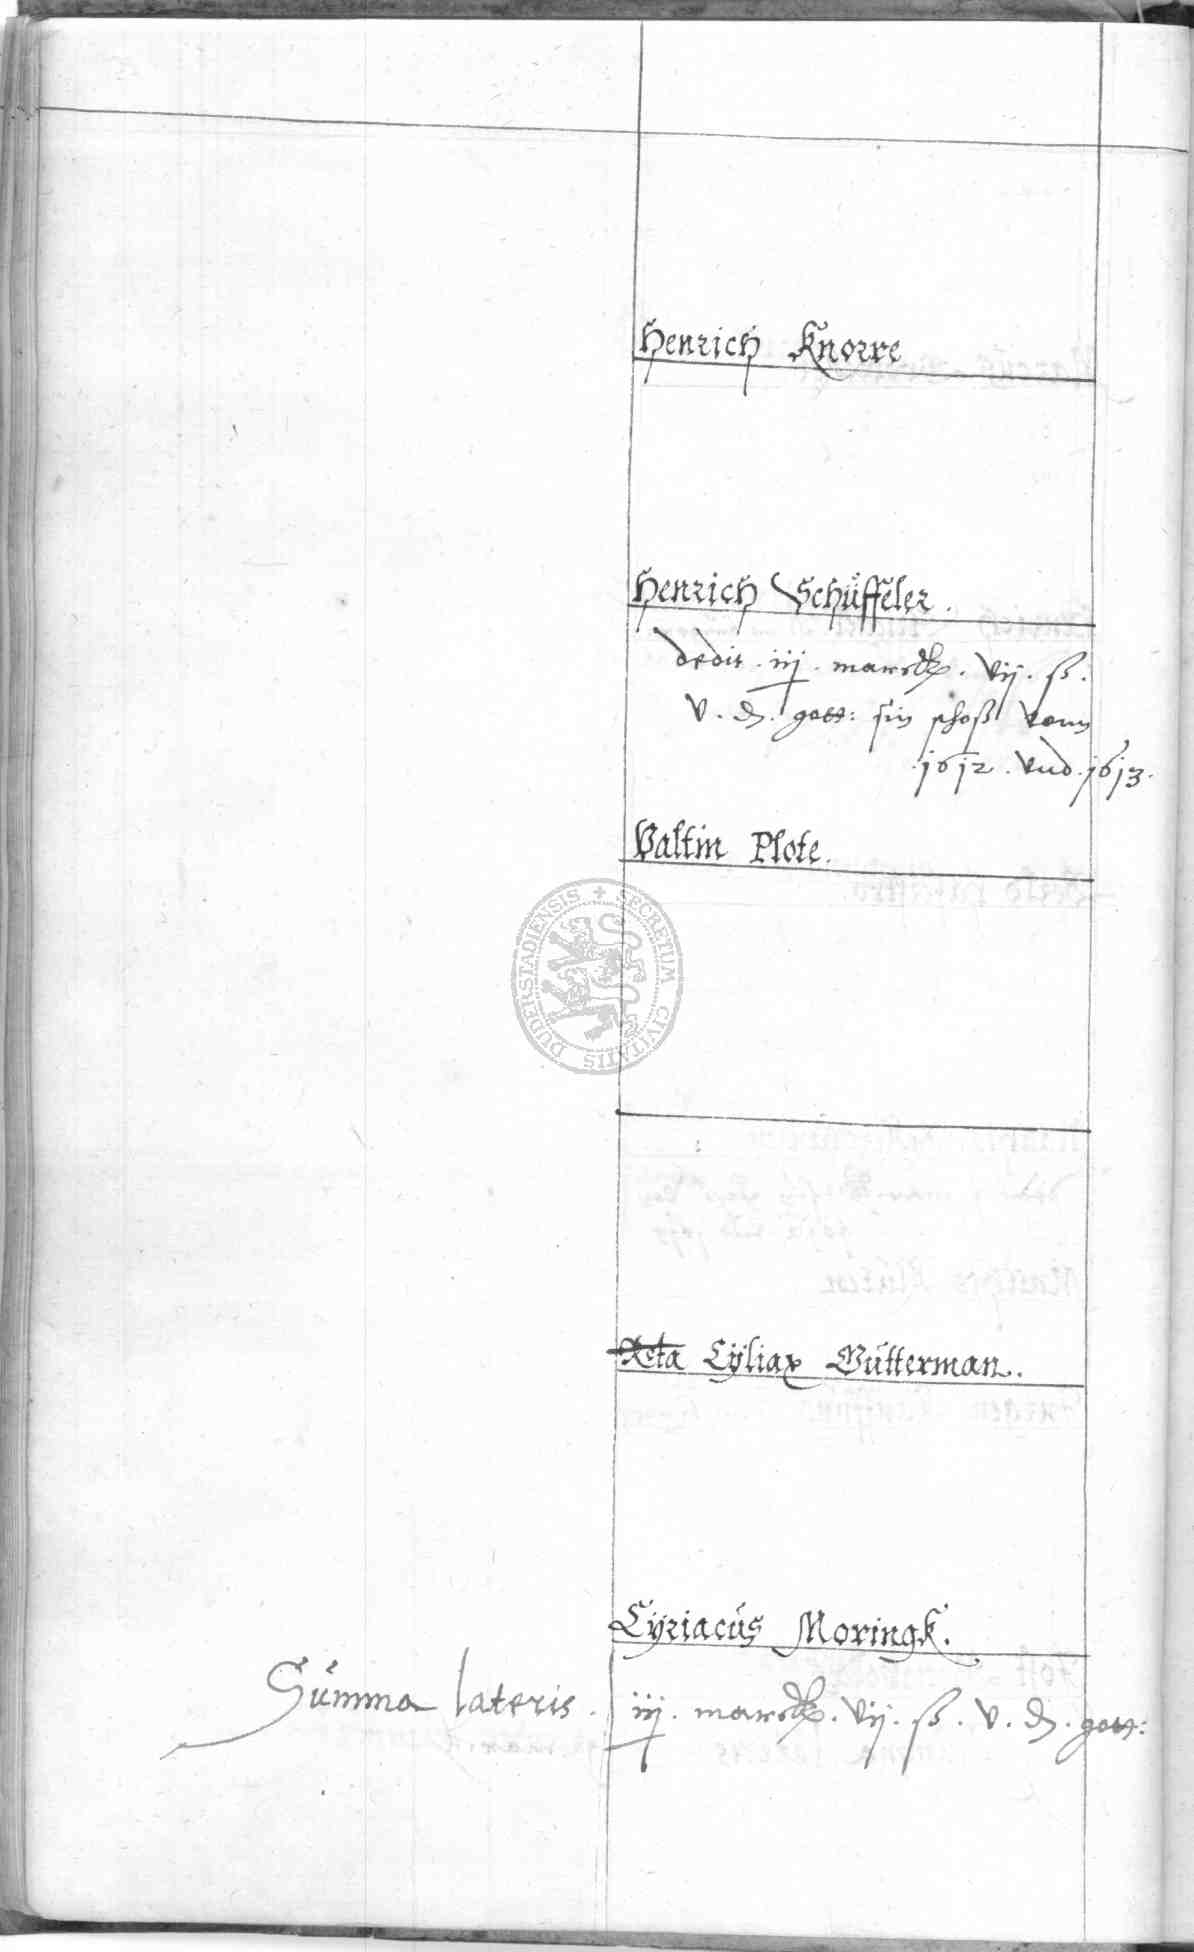 Henrich Knorre
Henrich Schüffeler.
dedit . iij . marck . vij . ß .
v . d . gott: sin schoß vonn
.1612 . vnd .1613.
Valtin Plote.
SECRETUM CIVITATIS DUDERSTADIENSIS
Relicta Ciliax Wütterman.
Cyriacus Moringk.
Summa lateris . iij . marck . vij . ß . v . d . gott: